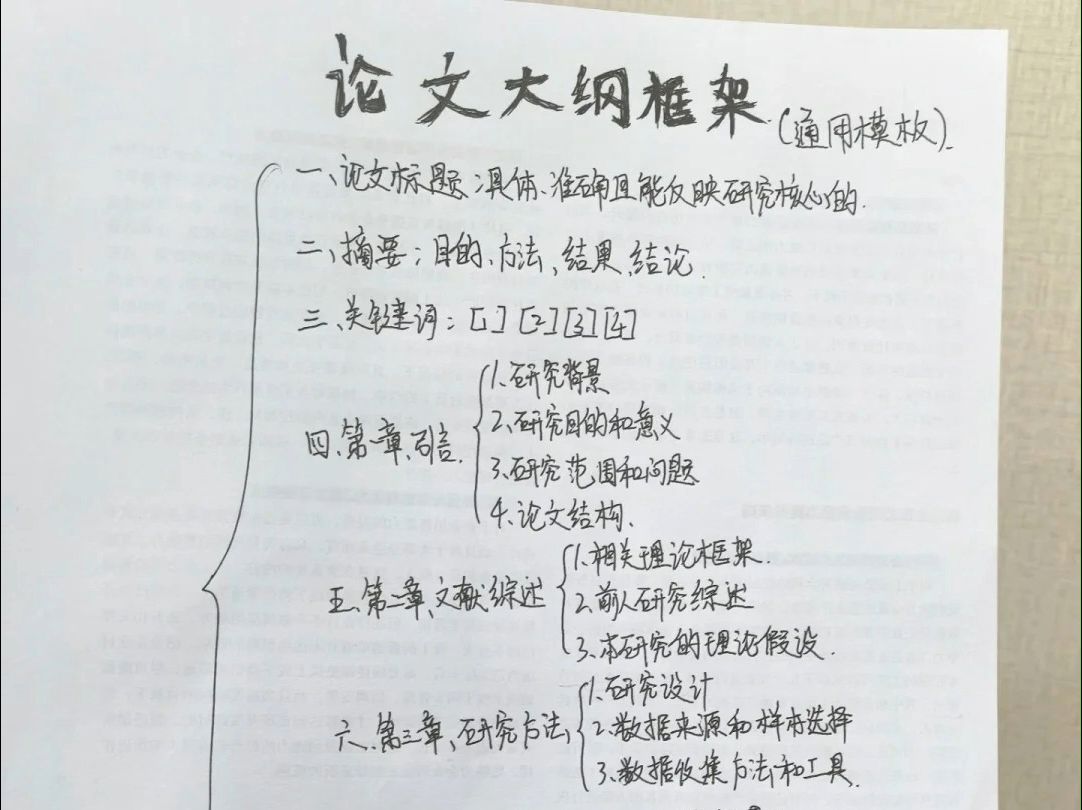 论文大纲框架(通用模板).
一、论文标题:具体、准确且能反映研究核心的.
二、摘要:目的、方法、结果、结论.
三、关键词:[1][2][3][4]
四、第一章、引言.
1、研究背景
2、研究目的和意义
3、研究范围和问题
4、论文结构、
五、第二章、文献综述
1、相关理论框架.
2、前人研究综述
3、本研究的理论假设.
六、第三章、研究方法、
1、研究设计
2、数据来源和样本选择
3、数据收集方法和工具.